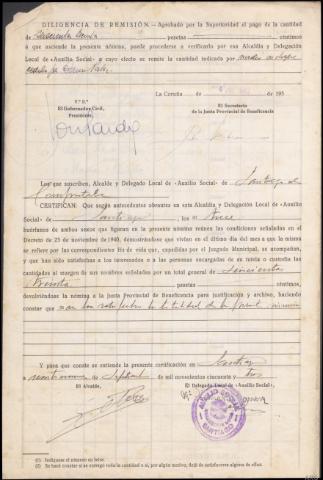 DILIGENCIA DE REMISIÓN.—Aprobado por la Superioridad el pago de la cantidad
de pesetas céntimos
a que asciende la presente nómina, puede procederse a verificarlo por esa Alcaldía y Delegación
Local de «Auxilio Social» a cuyo efecto se remite la cantidad indicada por
La Coruña, de de 195
V.º B.º
El Gobernador Civil,
Presidente,
El Secretario
de la Junta Provincial de Beneficencia
Los que suscriben, Alcalde y Delegado Local de «Auxilio Social» de Santiago de
Compostela
CERTIFICAN: Que según antecedentes obrantes en esta Alcaldía y Delegación Local de «Auxilio
Social» de Santiago, los (1) trece
huérfanos de ambos sexos que figuran en la presente nómina reúnen las condiciones señaladas en el
Decreto de 23 de noviembre de 1940, demostrándose que vivían en el último día del mes a que la misma
se refiere por las correspondientes fés de vida que, expedidas por el Juzgado Municipal, se acompañan,
y que han sido satisfechas a los interesados o a las personas encargadas de su tutela o custodia las
cantidades al margen de sus nombres señaladas por un total general de
treinta pesetas céntimos,
devolviéndose la nómina a la Junta Provincial de Beneficencia para justificación y archivo, haciendo
constar que (2)
Y para que conste se extiende la presente certificación en Santiago
a de de mil novecientos cincuenta y tres
El Alcalde,
El Delegado Local de «Auxilio Social»,
AUXILIO SOCIAL
SANTIAGO
(1) Indíquese el número en letra.
(2) Se hará constar si se entregó toda la cantidad o si, por algún motivo, dejó de satisfacerse alguna de ellas.